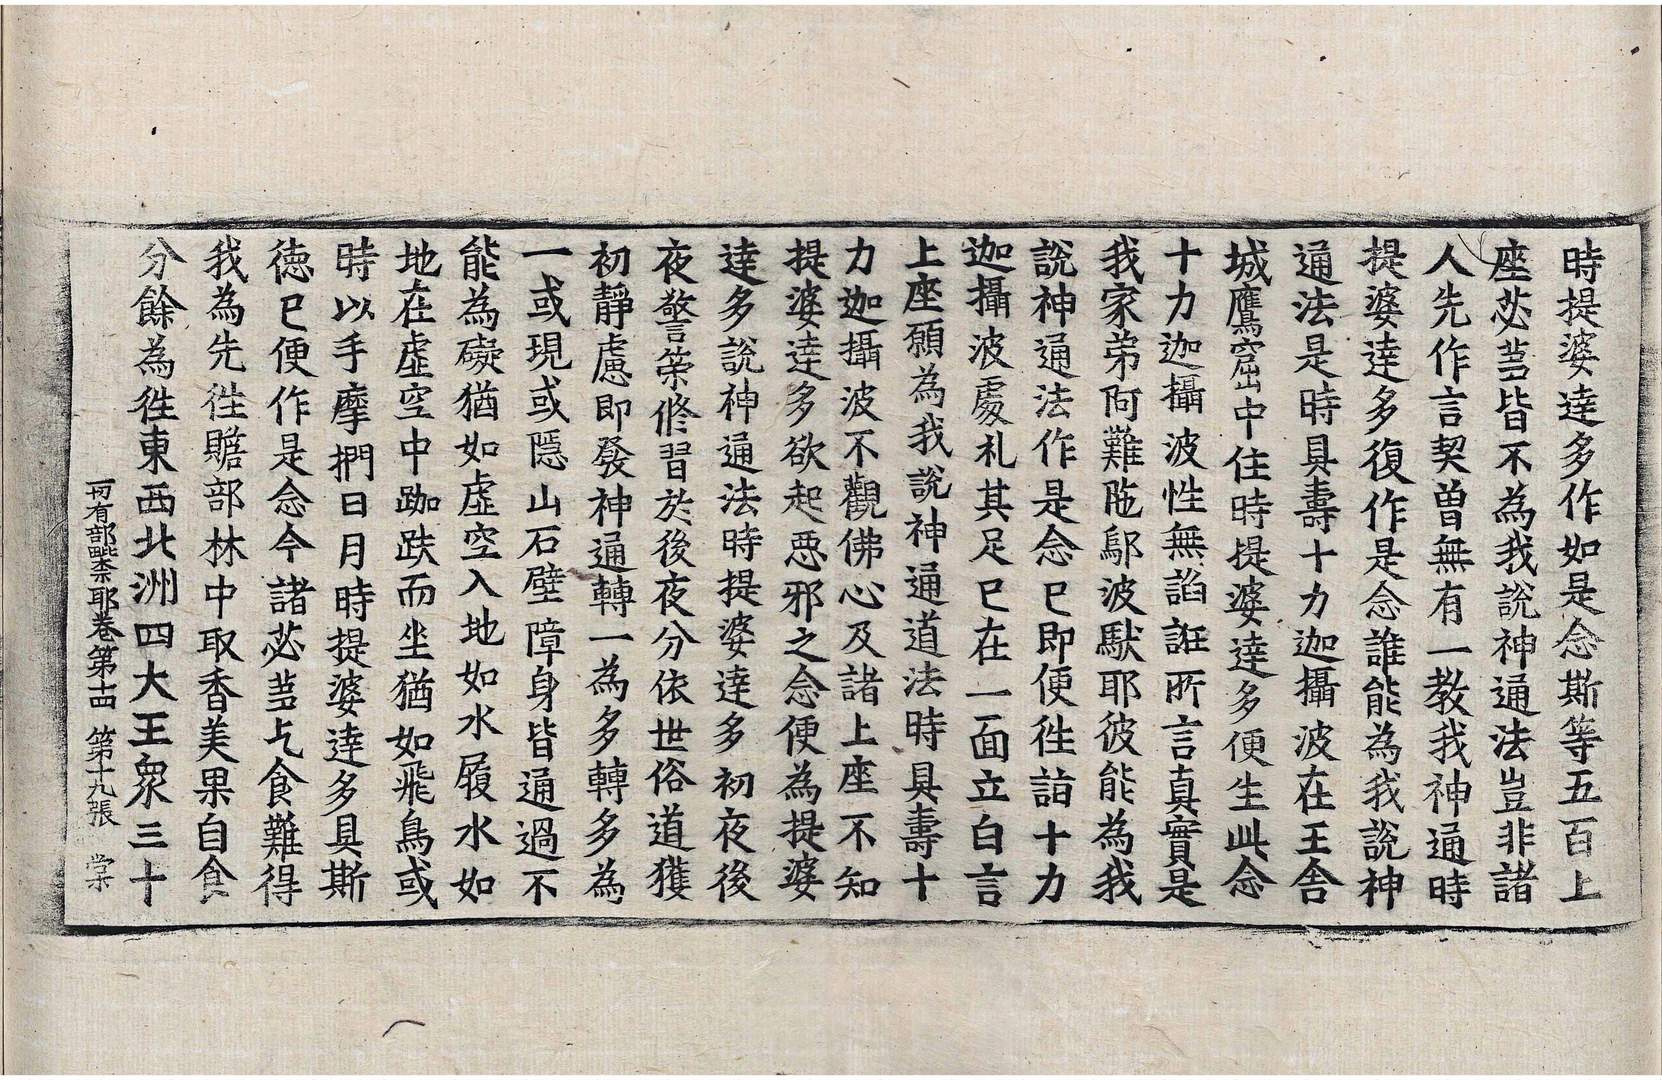 時提婆達多作如是念斯等五百上
座苾芻皆不為我說神通法豈非諸
人先作言契曽無有一教我神通時
提婆達多復作是念誰能為我說神
通法是時具壽十力迦攝波在王舍
城鷹窟中住時提婆達多便生此念
十力迦攝波性無諂誑所言真實是
我家弟阿難陁鄔波馱耶彼能為我
說神通法作是念已即便徃詣十力
迦攝波處礼其足已在一面立白言
上座願為我說神通道法時具壽十
力迦攝波不觀佛心及諸上座不知
提婆達多欲起惡邪之念便為提婆
達多說神通法時提婆達多初夜後
夜警策修習於後夜分依世俗道獲
初靜慮即發神通轉一為多轉多為
一或現或隱山石壁障身皆通過不
能為礙猶如虛空入地如水履水如
地在虛空中跏趺而坐猶如飛鳥或
時以手摩捫日月時提婆達多具斯
徳已便作是念今諸苾芻乞食難得
我為先徃贍部林中取香美果自食
分餘為徃東西北洲四大王衆三十
一切有部毗奈耶卷第十四 第十九張 棠